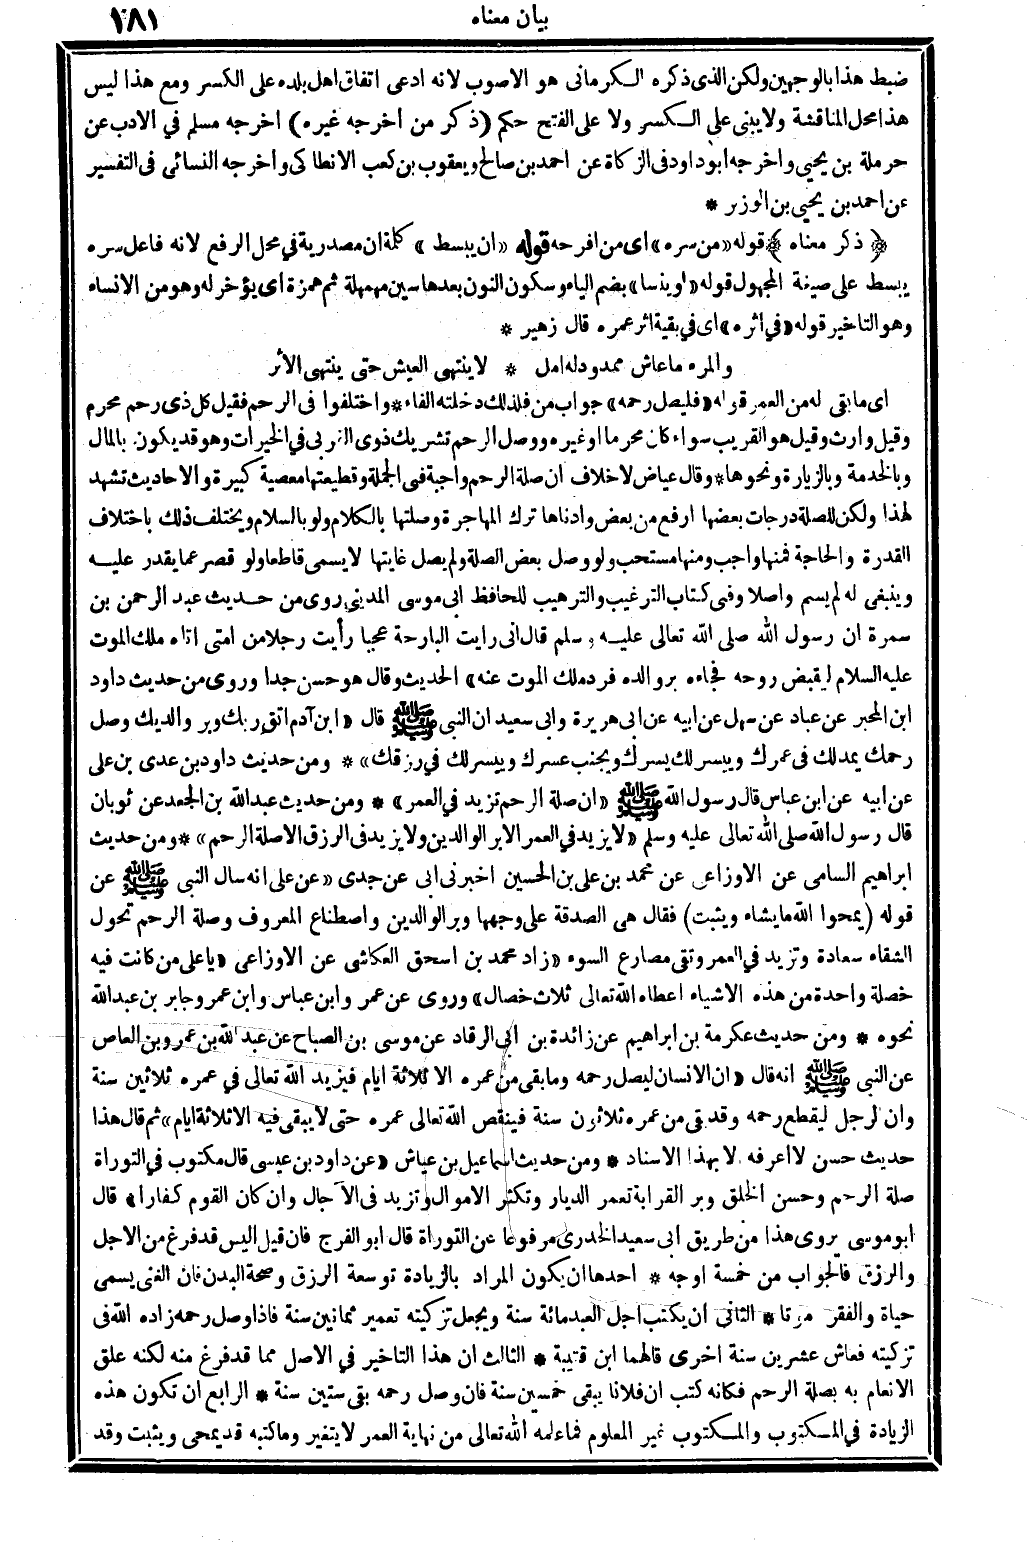 بيان معناه
١٨١
ضبط هذا بالوجهين ولكن الذى ذكره الكرمانى هو الاصوب لانه ادعى اتفاق اهل بلده على الكسر ومع هذا ليس
هذا محل المناقشة ولا يبنى على الكسر ولا على الفتح حكم (ذكر من أخرجه غيره) اخرجه مسلم في الادب عن
حرملة بن يحيى واخرجه ابو داود فى الزكاة عن احمد بن صالح ويعقوب بن كعب الانطاكى وأخرجه النسائى فى التفسير
عن احمد بن يحيى بن الوزير *
﴿ ذكر معناه ﴾ قوله «من سره» اى من افرحه قوله «ان يبسط» كلمة ان مصدرية في محل الرفع لانه فاعل سره
يبسط على صيغة المجهول قوله «اوينسا» بضم الياء وسكون النون بعدها سين مهملة ثم همزة اى يؤخر له وهو من الانساء
وهو التاخير قوله «في اثره» اى في بقية اثر عمره قال زهير *
والمرء ما عاش ممدود له امل * لا ينتهى العيش حتى ينتهى الأثر
اى ما بقى له من العمر قوله «فليصل رحمه» جواب من فلذلك دخلته الفاء * واختلفوا فى الرحم فقيل كل ذى رحم محرم
وقيل وارث وقيل هو القريب سواء كان محرما او غيره ووصل الرحم تشريك ذوى القربى في الخيرات وهو قد يكون بالمال
وبالخدمة وبالزيارة ونحوها * وقال عياض لا خلاف ان صلة الرحم واجبة فى الجملة وقطيعتها معصية كبيرة والاحاديث تشهد
لهذا ولكن للصلة درجات بعضها ارفع من بعض وادناها ترك المهاجرة وصلتها بالكلام ولو بالسلام ويختلف ذلك باختلاف
القدرة والحاجة فمنها واجب ومنها مستحب ولو وصل بعض الصلة ولم يصل غايتها لا يسمى قاطعا ولو قصر عما يقدر عليه
وينبغى له لم يسم واصلا وفى كتاب الترغيب والترهيب للحافظ ابى موسى المدينى روى من حديث عبد الرحمن بن
سمرة ان رسول الله صلى الله تعالى عليه وسلم قال انى رايت البارحة عجبا رأيت رجلا من امتى اتاه ملك الموت
عليه السلام ليقبض روحه فجاءه بر والده فرد ملك الموت عنه» الحديث وقال هو حسن جدا وروى من حديث داود
ابن المحبر عن عباد عن سهل عن ابيه عن ابى هريرة وابى سعيد ان النبى ﷺ قال «ابن آدم اتق ربك وبر والديك وصل
رحمك يمدلك فى عمرك وييسر لك يسرك ويجنب عسرك وييسر لك في رزقك» * ومن حديث داود بن عدى بن على
عن أبيه عن ابن عباس قال رسول الله ﷺ «ان صلة الرحم تزيد في العمر» * ومن حديث عبد الله بن الجعد عن ثوبان
قال رسول الله صلى الله تعالى عليه وسلم «لا يزيد في العمر الا بر الوالدين ولا يزيد فى الرزق الا صلة الرحم» * ومن حديث
ابراهيم السامى عن الاوزاعى عن محمد بن على بن الحسين اخبرنى ابى عن جدى «عن على انه سال النبى ﷺ عن
قوله (يمحوا الله ما يشاء ويثبت) فقال هى الصدقة على وجهها وبر الوالدين واصطناع المعروف وصلة الرحم تحول
الشقاء سعادة وتزيد في العمر وتقى مصارع السوء «زاد محمد بن اسحق العكاشى عن الاوزاعى «يا على من كانت فيه
خصلة واحدة من هذه الاشياء اعطاه الله تعالى ثلاث خصال» وروى عن عمر وابن عباس وابن عمر وجابر بن عبد الله
نحوه * ومن حديث عكرمة بن ابراهيم عن زائدة بن ابى الرقاد عن موسى بن الصباح عن عبد الله بن عمرو بن العاص
عن النبى ﷺ انه قال «ان الانسان ليصل رحمه وما بقى من عمره الا ثلاثة ايام فيزيد الله تعالى في عمره ثلاثين سنة
وان الرجل ليقطع رحمه وقد بقى من عمره ثلاثون سنة فينقص الله تعالى عمره حتى لا يبقى فيه الا ثلاثة ايام» ثم قال هذا
حديث حسن لا اعرفه الا بهذا الاسناد * ومن حديث اسماعيل بن عياش «عن داود بن عيسى قال مكتوب في التوراة
صلة الرحم وحسن الخلق وبر القرابة تعمر الديار وتكثر الاموال وتزيد فى الآجال وان كان القوم كفارا» قال
ابو موسى يروى هذا من طريق ابى سعيد الخدرى مرفوعا عن التوراة قال ابو الفرج فان قيل اليس قد فرغ من الاجل
والرزق فالجواب من خمسة اوجه * احدها ان يكون المراد بالزيادة توسعة الرزق وصحة البدن فان الغنى يسمى
حياة والفقر موتا * الثانى أن يكتب اجل العبد مائة سنة ويجعل تزكيته تعمير ثمانين سنة فاذا وصل رحمه زاده الله فى
تزكيته فعاش عشرين سنة اخرى قالهما ابن قتيبة * الثالث ان هذا التاخير في الاصل مما قد فرغ منه لكنه علق
الانعام به بصلة الرحم فكانه كتب ان فلانا يبقى خمسين سنة فان وصل رحمه بقى ستين سنة * الرابع ان تكون هذه
الزيادة في المكتوب والمكتوب غير المعلوم فما علمه الله تعالى من نهاية العمر لا يتغير وما كتبه قد يمحى ويثبت وقد